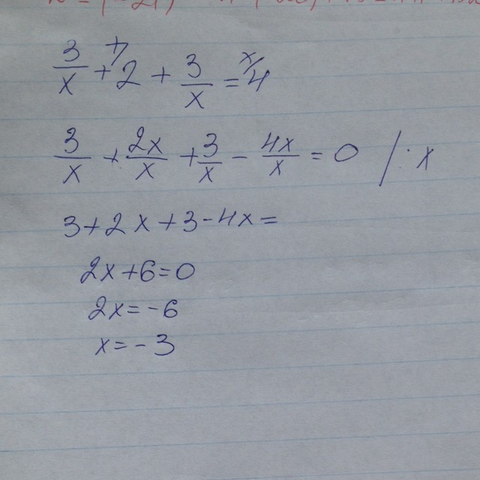 3/x + 2 + 3/x = 4
3/x + 2x/x + 3/x - 4x/x = 0 /: x
3+2x+3-4x=
2x+6=0
2x=-6
x=-3